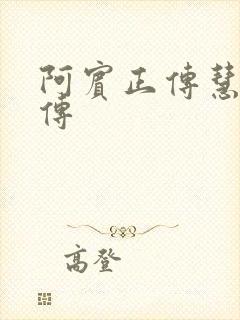 阿賓正傳慧
傳
高登